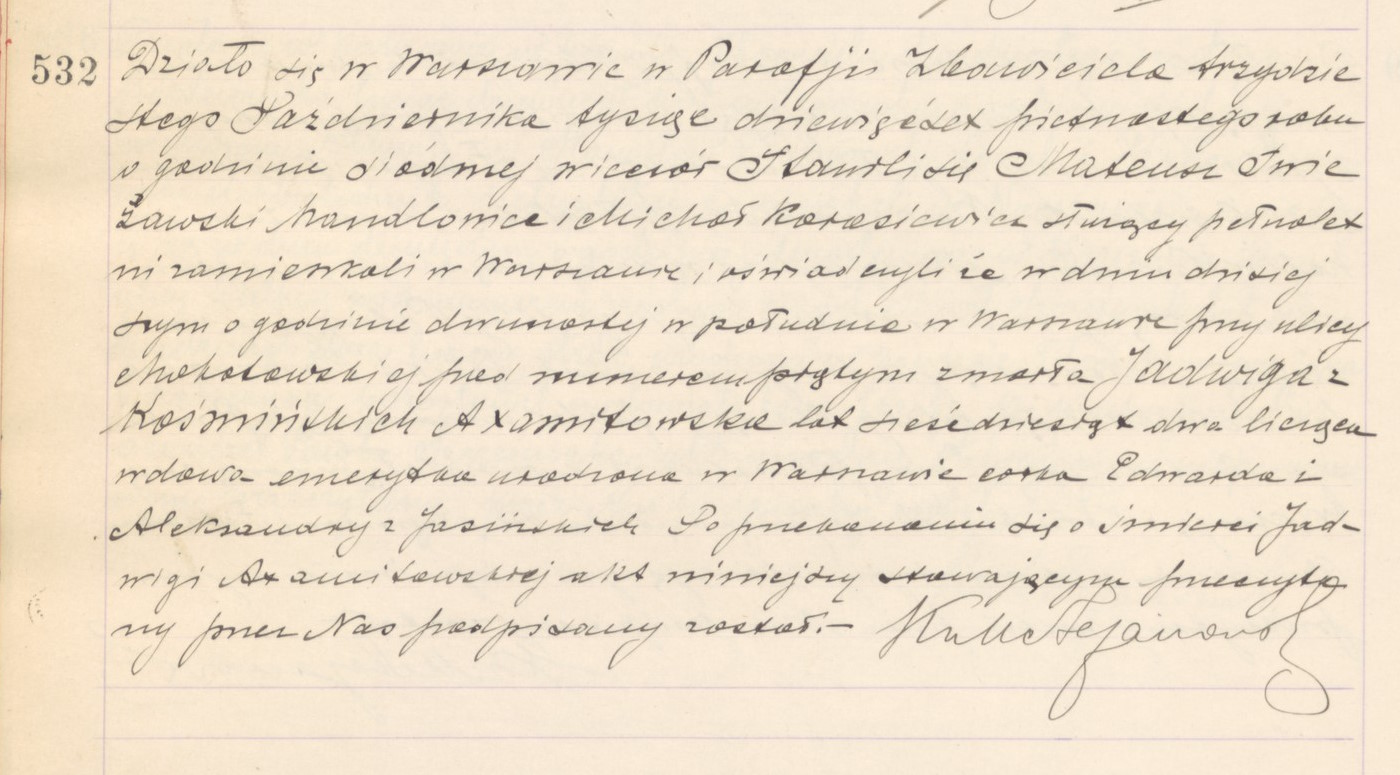 532 Działo się w Warszawie w Parafji Zbawiciela trzydzie
stego Października tysiąc dziewięćset piętnastego roku
o godzinie siódmej wieczór Stawili się Mateusz Świe
żawski handlowiec i Michał Karasiewicz służący pełnolet
ni zamieszkali w Warszawie i oświadczyli że w dniu dzisiej
szym o godzinie dwunastej w południe w Warszawie przy ulicy
Mokotowskiej pod numerem piętym zmarła Jadwiga z
Kośmińskich Axamitowska lat sześćdziesiąt dwa licząca
wdowa emerytka urodzona w Warszawie córka Edwarda i
Aleksandry z Jasińskich Po przekonaniu się o śmierci Jad-
wigi Axamitowskiej akt niniejszy stawającym przeczyta
ny przez Nas podpisany został.-